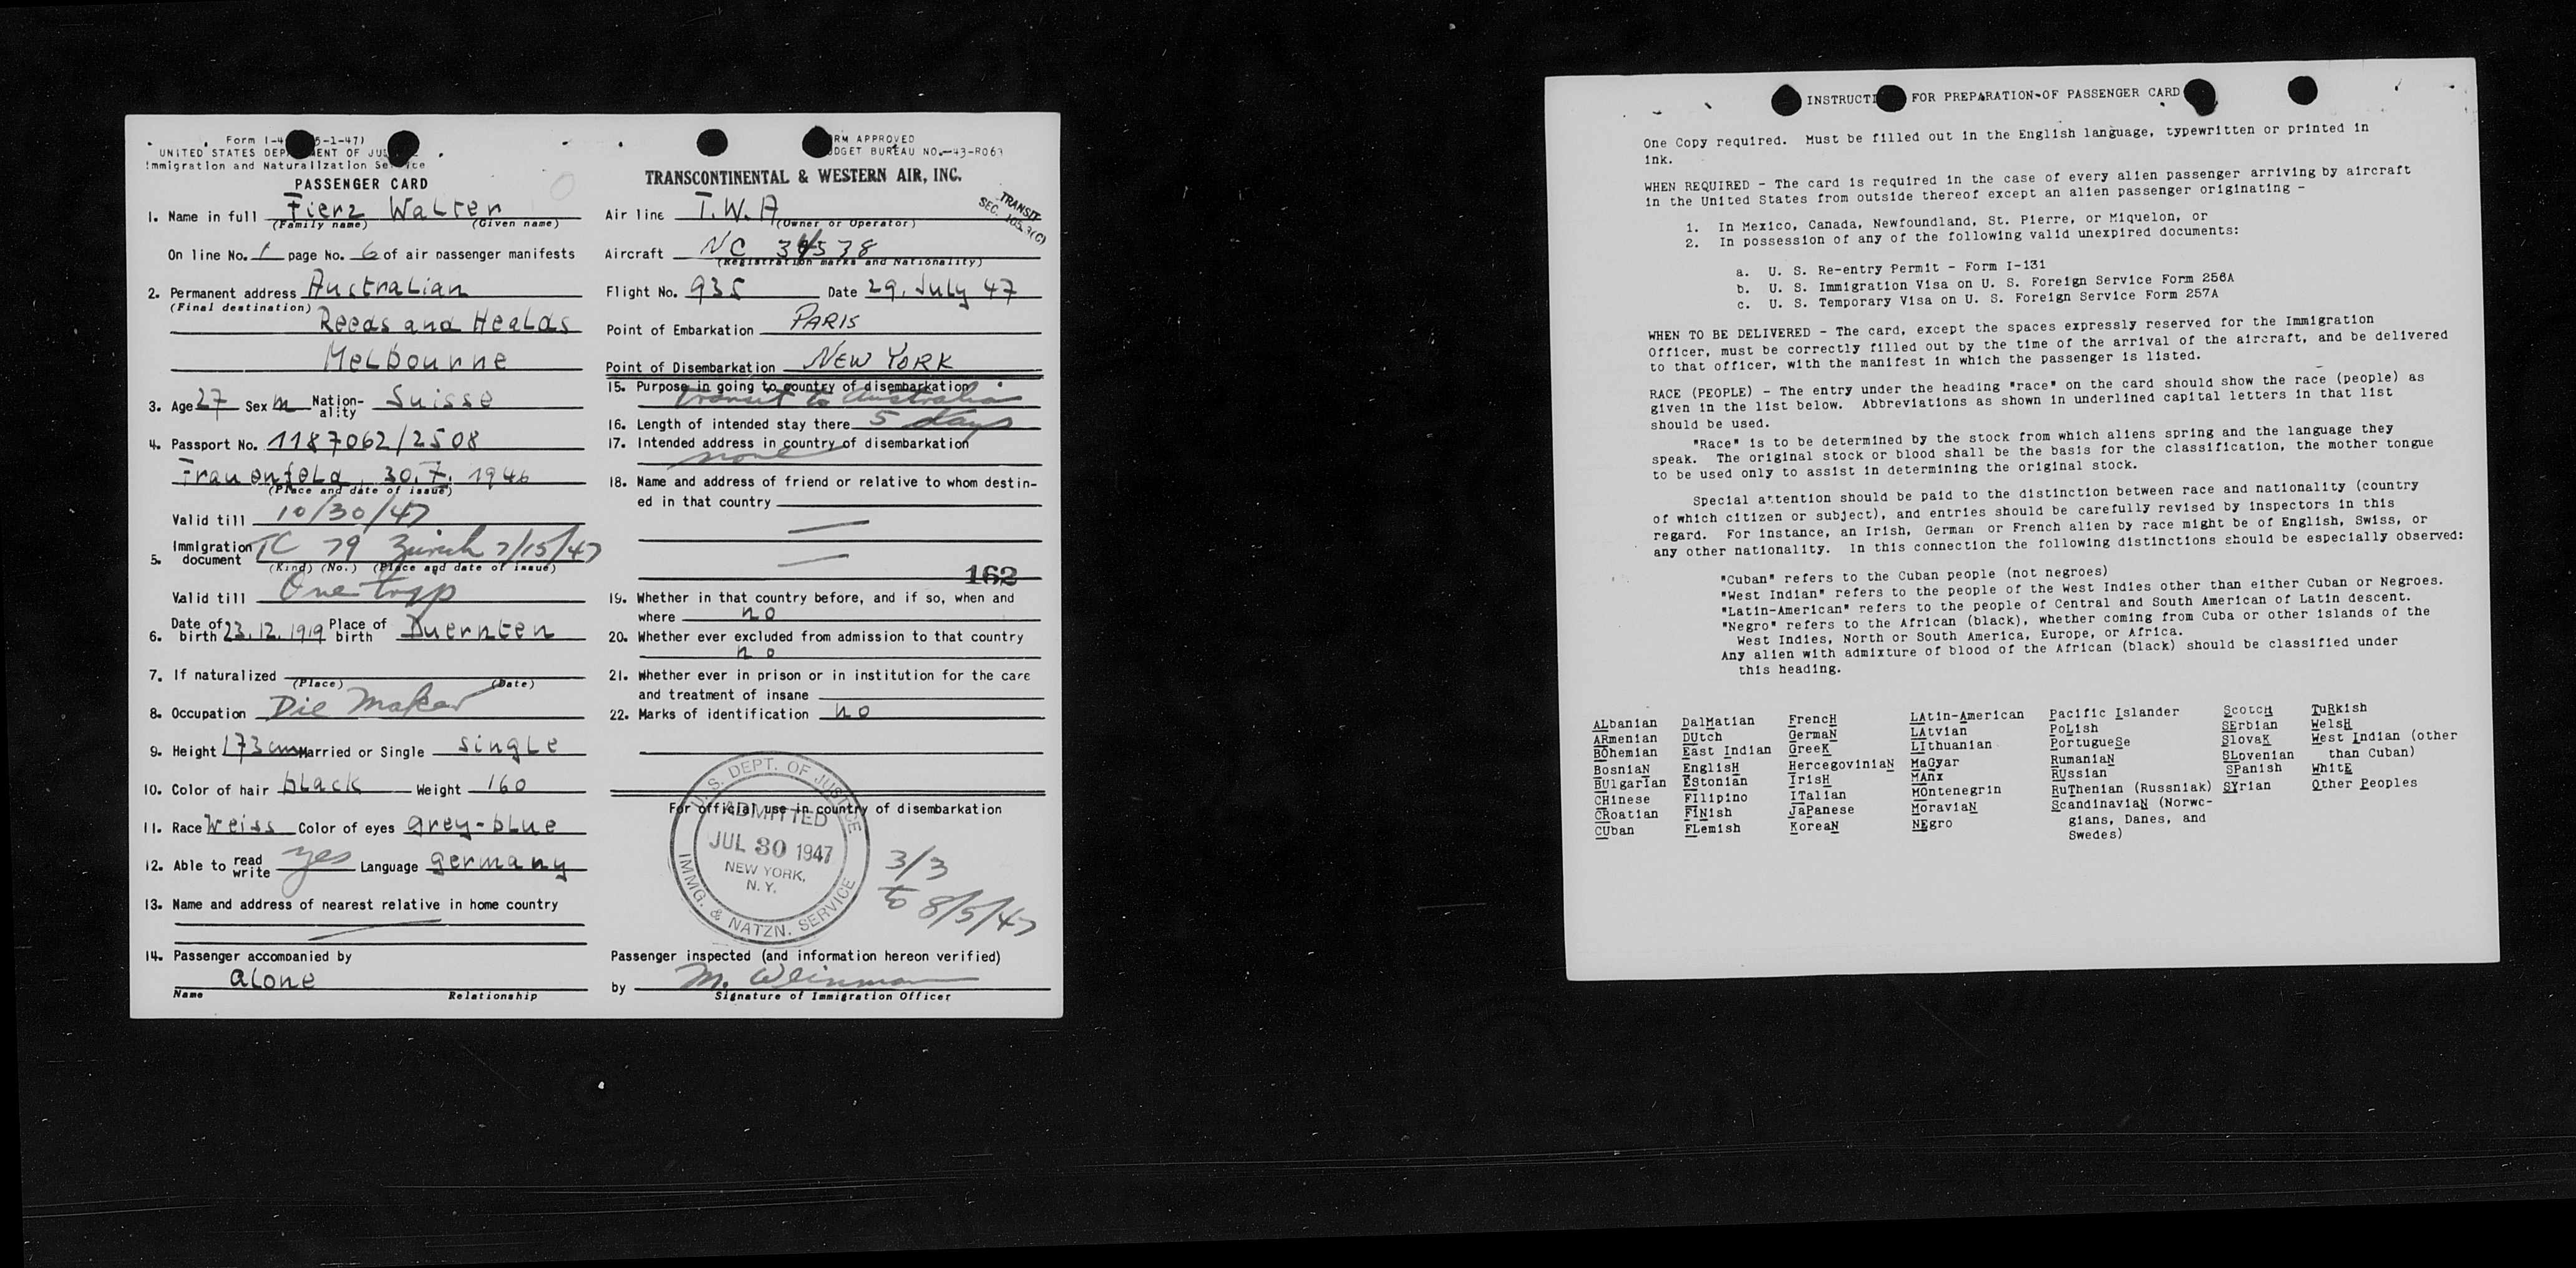 Form I-4 5-1-47)
UNITED STATES DEP ENT OF JUS
Immigration and Naturalization Se ice
PASSENGER CARD
1. Name in full Fierz Walter
(Family name) (Given name)
On line No. 1 page No. 6 of air passenger manifests
2. Permanent address Australian
(Final destination) Reeds and Healds
Melbourne
3. Age 27 Sex m Nation-ality Suisse
4. Passport No. 1187062/2508
Frauenfeld 30.7. 1946
(Place and date of issue)
Valid till 10/30/47
5. Immigration document TC 79 Zürich 7/15/47
(Kind) (No.) (Place and date of issue)
Valid till One trip
6. Date of birth 23.12.1919 Place of birth Duernten
7. If naturalized
(Place) (Date)
8. Occupation Die Maker
9. Height 173 cm Married or Single single
10. Color of hair black Weight 160
11. Race Weiss Color of eyes grey-blue
12. Able to read write yes Language germany
13. Name and address of nearest relative in home country
14. Passenger accompanied by
alone
Name Relationship
RM APPROVED
DGET BUREAU NO.-43-R063
TRANSCONTINENTAL & WESTERN AIR, INC.
TRANSIT
SEC. 105.3(C)
Air line T.W.A
(Owner or Operator)
Aircraft NC 34538
(Registration marks and Nationality)
Flight No. 935 Date 29. July 47
Point of Embarkation PARIS
Point of Disembarkation NEW YORK
15. Purpose in going to country of disembarkation
transit to Australia
16. Length of intended stay there 5 days
17. Intended address in country of disembarkation
none
18. Name and address of friend or relative to whom destin-
ed in that country
162
19. Whether in that country before, and if so, when and
where no
20. Whether ever excluded from admission to that country
no
21. Whether ever in prison or in institution for the care
and treatment of insane
22. Marks of identification no
For official use in country of disembarkation
U.S. DEPT. OF JUSTICE
ADMITTED
JUL 30 1947
NEW YORK,
N.Y.
IMMG. & NATZN. SERVICE
3/3
to 8/5/47
Passenger inspected (and information hereon verified)
by M. Weinman
Signature of Immigration Officer
INSTRUCTI FOR PREPARATION OF PASSENGER CARD
One Copy required. Must be filled out in the English language, typewritten or printed in
ink.
WHEN REQUIRED - The card is required in the case of every alien passenger arriving by aircraft
in the United States from outside thereof except an alien passenger originating -
1. In Mexico, Canada, Newfoundland, St. Pierre, or Miquelon, or
2. In possession of any of the following valid unexpired documents:
a. U. S. Re-entry Permit - Form I-131
b. U. S. Immigration Visa on U. S. Foreign Service Form 256A
c. U. S. Temporary Visa on U. S. Foreign Service Form 257A
WHEN TO BE DELIVERED - The card, except the spaces expressly reserved for the Immigration
Officer, must be correctly filled out by the time of the arrival of the aircraft, and be delivered
to that officer, with the manifest in which the passenger is listed.
RACE (PEOPLE) - The entry under the heading "race" on the card should show the race (people) as
given in the list below. Abbreviations as shown in underlined capital letters in that list
should be used.
"Race" is to be determined by the stock from which aliens spring and the language they
speak. The original stock or blood shall be the basis for the classification, the mother tongue
to be used only to assist in determining the original stock.
Special attention should be paid to the distinction between race and nationality (country
of which citizen or subject), and entries should be carefully revised by inspectors in this
regard. For instance, an Irish, German or French alien by race might be of English, Swiss, or
any other nationality. In this connection the following distinctions should be especially observed:
"Cuban" refers to the Cuban people (not negroes)
"West Indian" refers to the people of the West Indies other than either Cuban or Negroes.
"Latin-American" refers to the people of Central and South American of Latin descent.
"Negro" refers to the African (black), whether coming from Cuba or other islands of the
West Indies, North or South America, Europe, or Africa.
Any alien with admixture of blood of the African (black) should be classified under
this heading.
ALbanian DalMatian FrencH LAtin-American Pacific Islander ScotcH TuRkish
ARmenian DUtch GermaN LAtvian PoLish SErbian WelsH
BOhemian East Indian GreeK LIthuanian PortugueSe SlovaK West Indian (other
BosniaN EnglisH HercegoviniaN MaGyar RumaniaN SLovenian than Cuban)
BUlgarian EStonian IrisH MAnx RUssian SPanish WhitE
CHinese FIlipino ITalian MOntenegrin RuThenian (Russniak) SYrian Other Peoples
CRoatian FINish JaPanese MoraviaN ScandinaviaN (Norwe-
CUban FLemish KoreaN NEgro gians, Danes, and
Swedes)